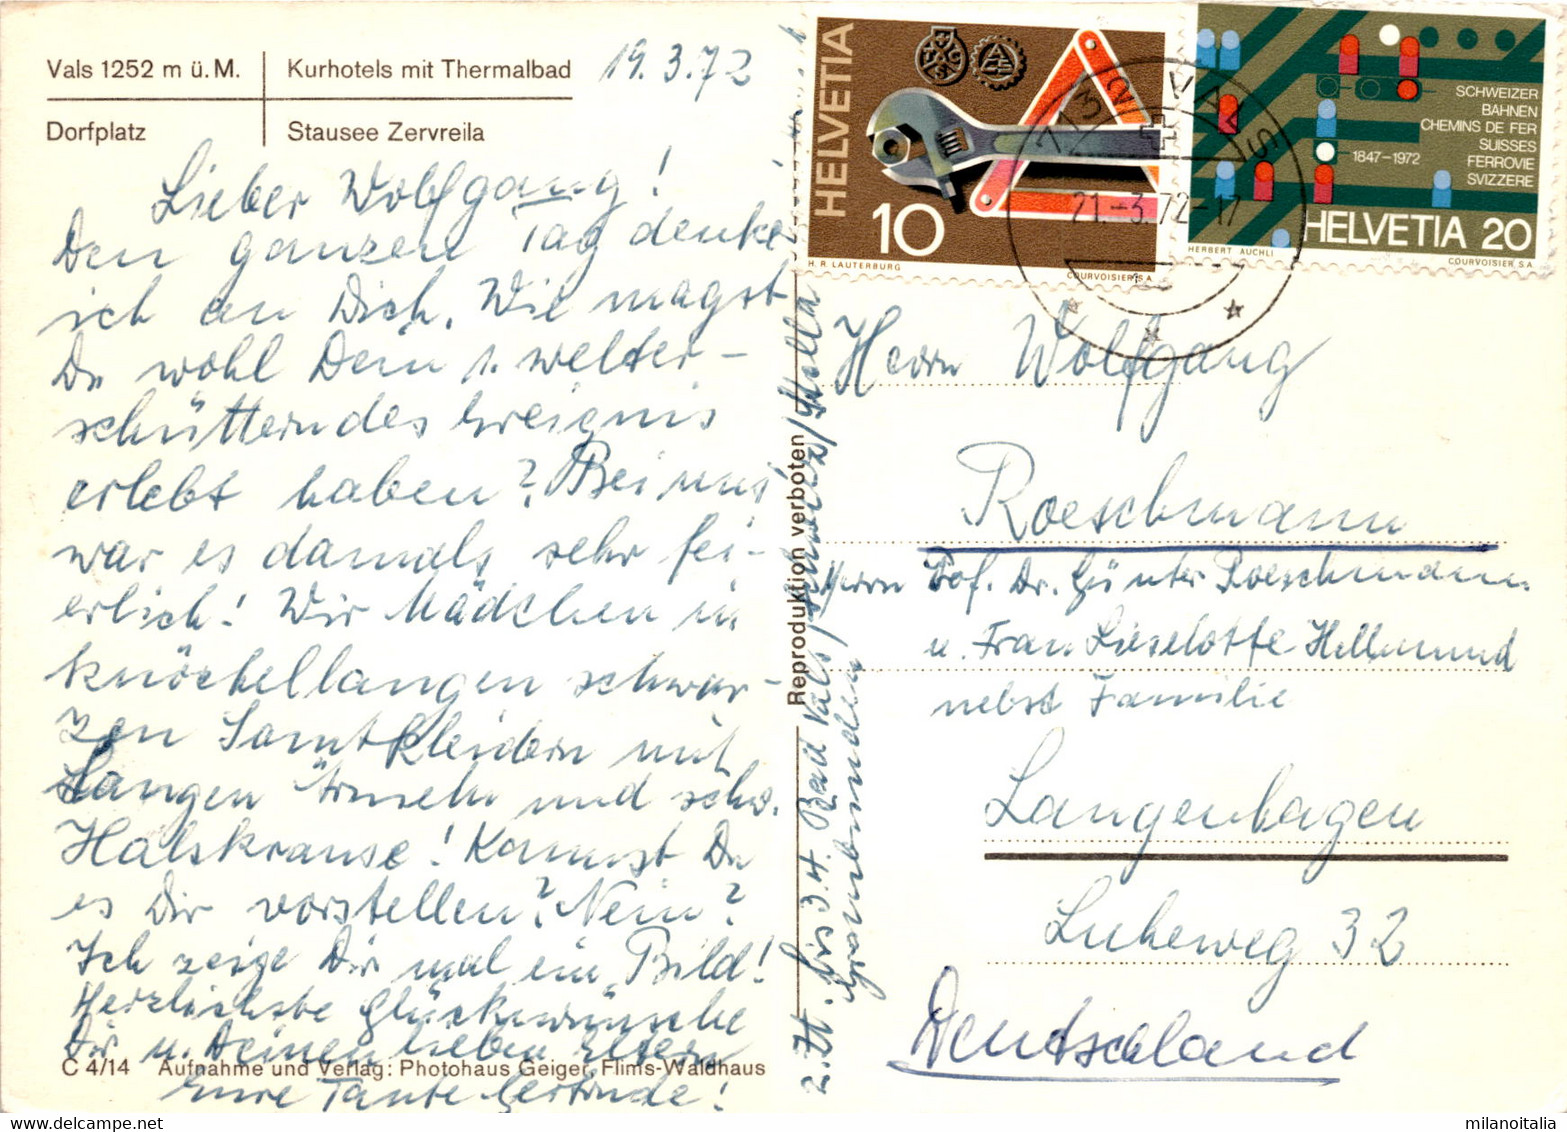 Vals 1252 m ü. M.
Kurhotels mit Thermalbad
Dorfplatz
Stausee Zervreila
19.3.72
Lieber Wolfgang!
Den ganzen Tag denke
ich an Dich. Wie magst
Du wohl Dein 1. welter-
schütterndes Ereignis
erlebt haben? Bei uns
war es damals sehr fei-
erlich! Wir Mädchen in
knöchellangen schwar-
zen Samtkleidern mit
Langen Ärmeln und schw.
Halskrause! Kannst Du
es Dir vorstellen? Nein?
Ich zeige Dir mal ein Bild!
Herzlichste Glückwünsche
Dir u. Deinen lieben Eltern
Eure Tante Gertrude!
C 4/14 Aufnahme und Verlag: Photohaus Geiger, Flims-Waldhaus
Reproduktion verboten
z. Zt. bis 3.4. Bad Vals/Schweiz/
Graubünden/
HELVETIA
10
H. R. LAUTERBURG
COURVOISIER S A
SCHWEIZER
BAHNEN
CHEMINS DE FER
SUISSES
FERROVIE
SVIZZERE
1847-1972
HELVETIA 20
HERBERT AUCHLI
COURVOISIER S A
7132 VALS
21.-3.72-17
Herrn Wolfgang
Roeschmann
Herrn Prof. Dr. Günter Roeschmann
u. Frau Lieselotte Hellmund
nebst Familie
Langenhagen
Luheweg 32
Deutschland
milanoitalia